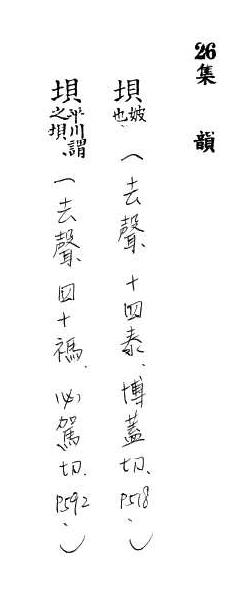 26集 韻
垻 坡也、(去聲、十四泰、博蓋切、P518、)
垻 平川謂之垻、(去聲、四十禡、必駕切、P592、)